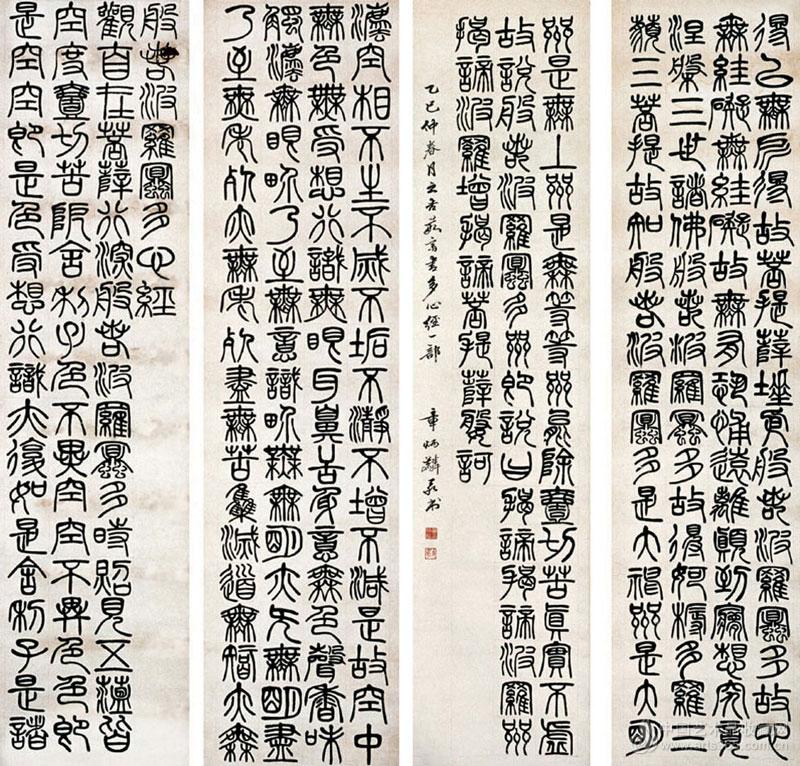 般若波羅蜜多心經
觀自在菩薩行深般若波羅蜜多時照見五蘊皆
空度一切苦厄舍利子色不異空空不異色色即
是空空即是色受想行識亦復如是舍利子是諸
法空相不生不滅不垢不淨不增不減是故空中
無色無受想行識無眼耳鼻舌身意無色聲香味
觸法無眼界乃至無意識界無無明亦無無明盡
乃至無老死亦無老死盡無苦集滅道無智亦無
得以無所得故菩提薩埵依般若波羅蜜多故心
無罣礙無罣礙故無有恐怖遠離顛倒夢想究竟
涅槃三世諸佛般若波羅蜜多故得阿耨多羅三
藐三菩提故知般若波羅蜜多是大神咒是大明
咒是無上咒是無等等咒能除一切苦真實不虛
故說般若波羅蜜多咒即說曰揭諦揭諦波羅咒
揭諦波羅增揭諦菩提薩婆訶
乙巳仲春月書多心經一部
章炳麟篆書